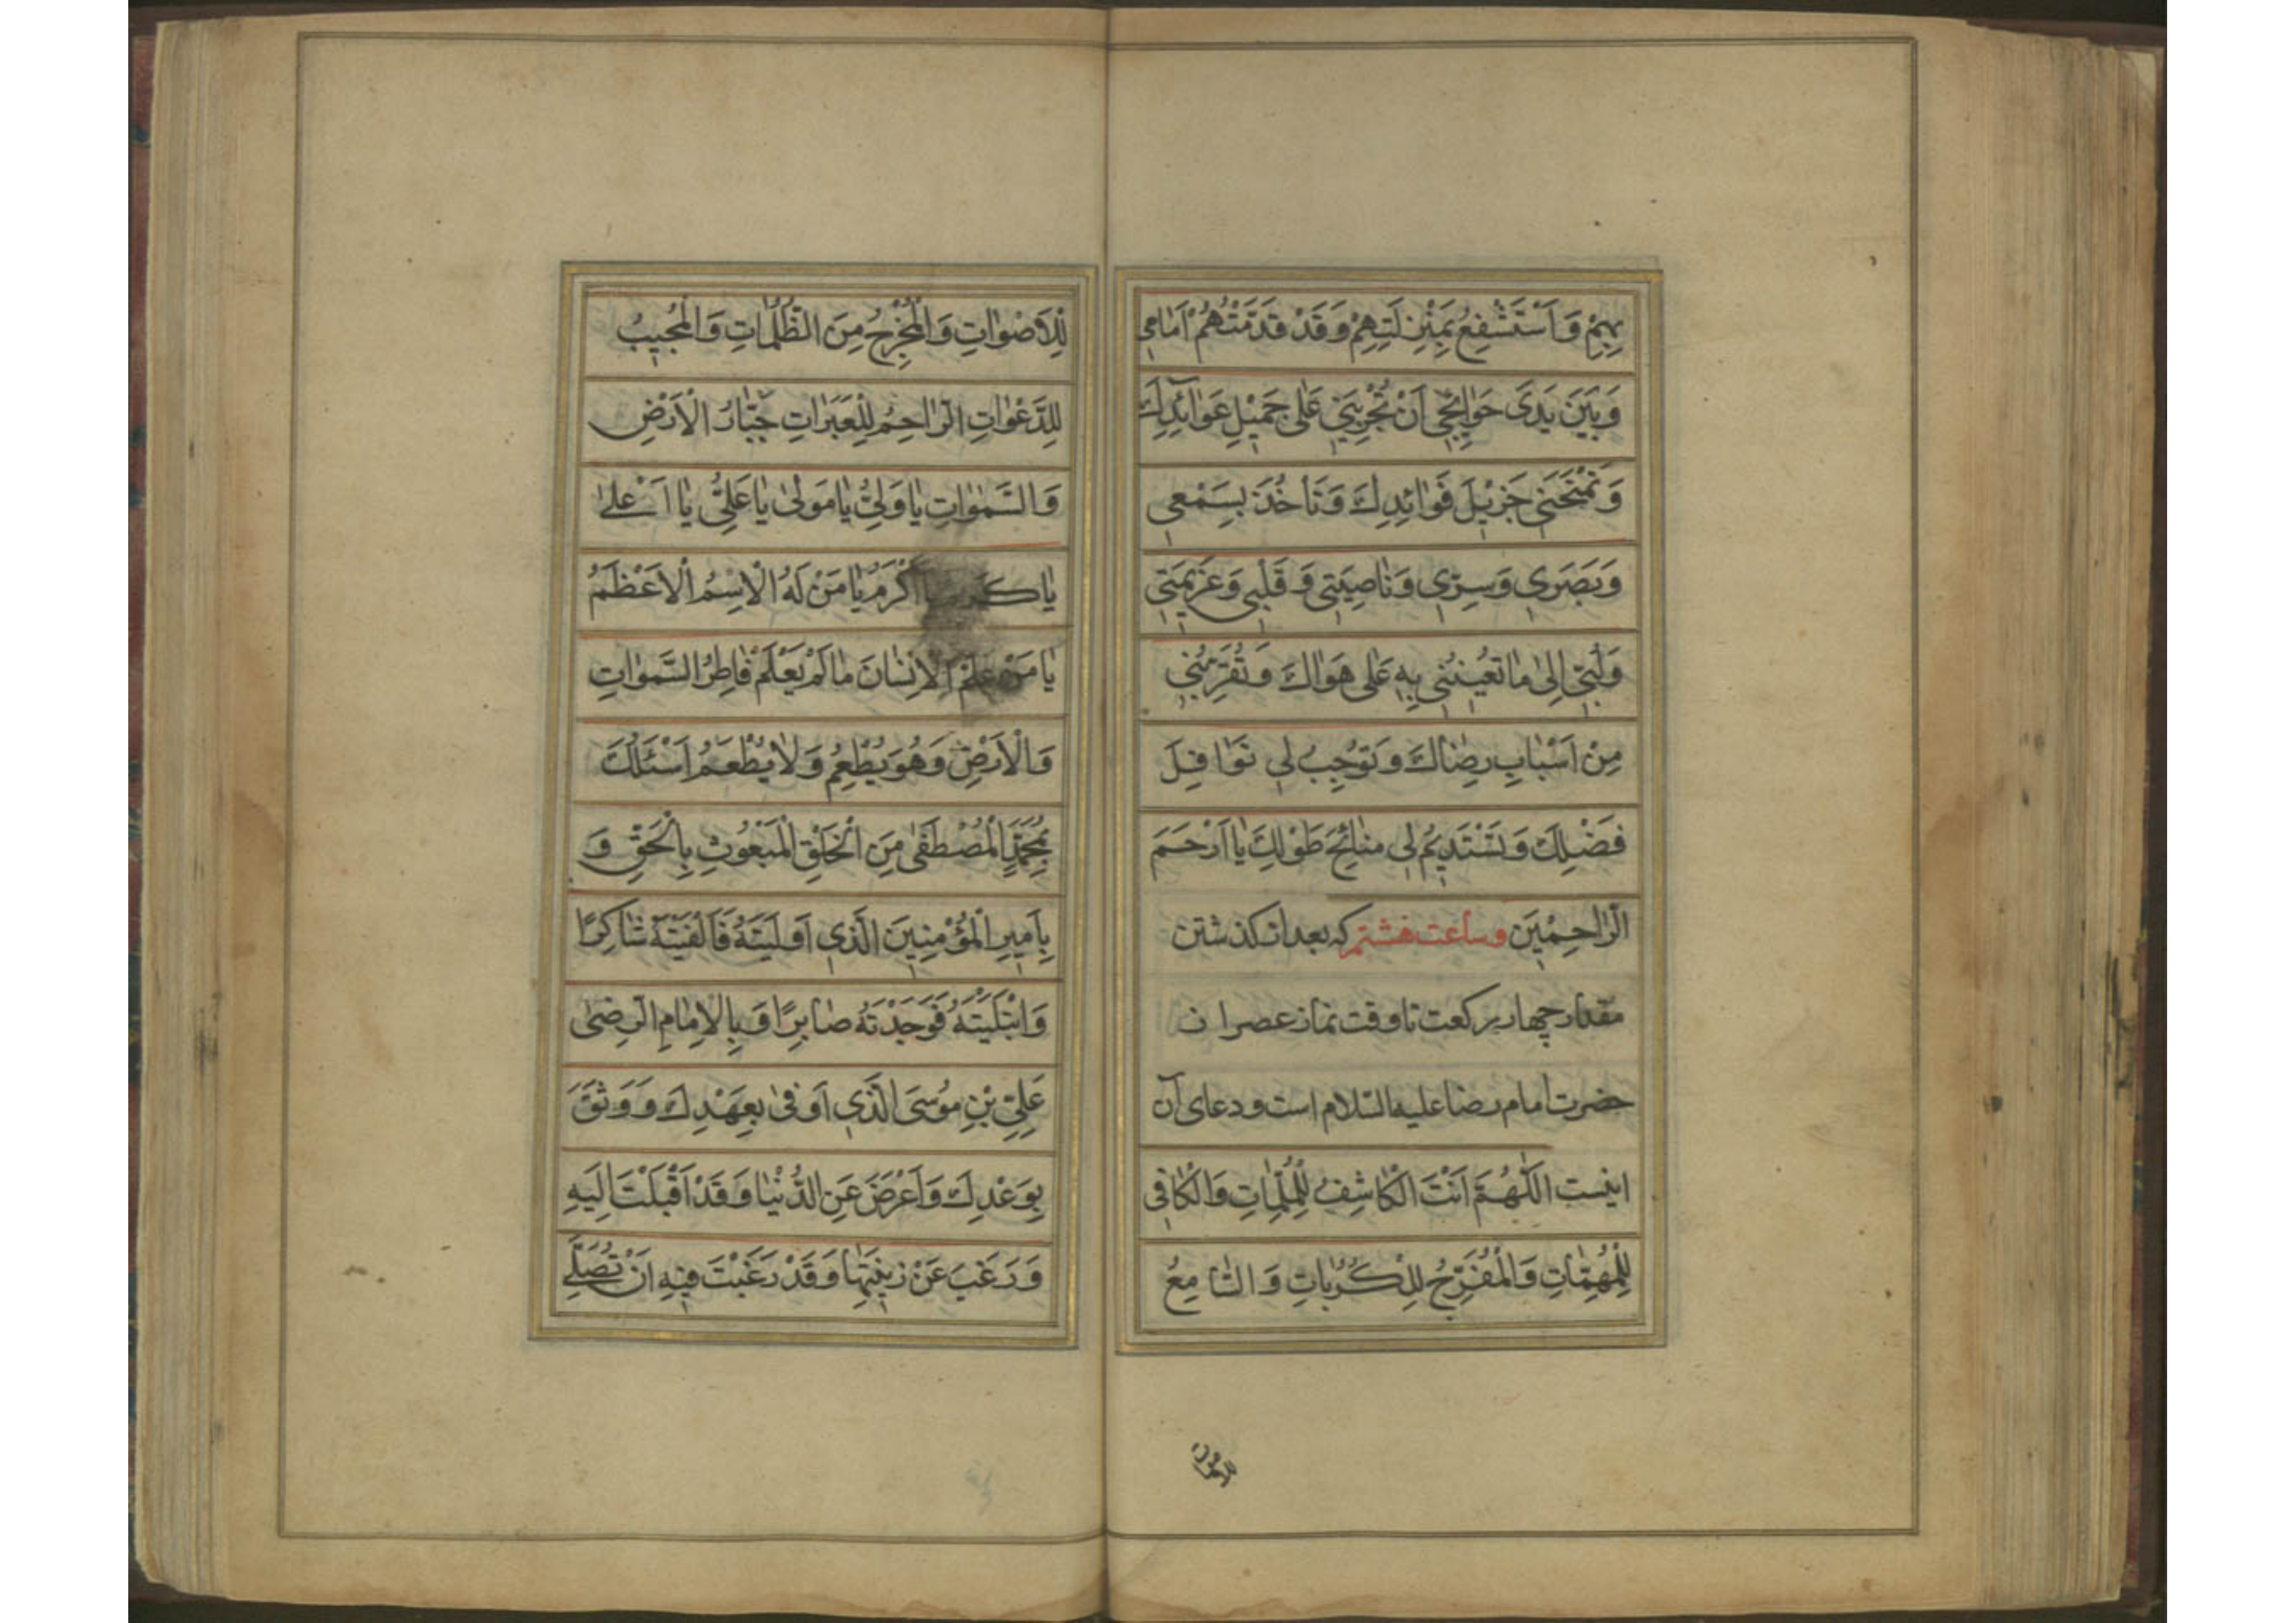 بِهِمْ وَاَسْتَشْفِعُ بِمَنْزِلَتِهِمْ وَقَدْ قَدَّمْتُهُمْ اَمَامِی
وَبَيْنَ يَدَیْ حَوٰائِجِی اَنْ تُجْرِيَنِی عَلٰی جَمِيْلِ عَوٰائِدِكَ
وَتَمْنَحَنِی جَزِيْلَ فَوٰائِدِكَ وَتَاخُذَ بِسَمْعِی
وَبَصَرِی وَسِرِّی وَنٰاصِيَتِی وَ قَلْبِی وَعَزِيْمَتِی
وَلُبِّی اِلٰی مٰا تُعِيْنُنِی بِهِ عَلٰی هَوٰاكَ وَتُقَرِّبُنِی
مِنْ اَسْبٰابِ رِضٰاكَ وَتُوْجِبُ لِی نَوٰافِلَ
فَضْلِكَ وَتَسْتَدِيْمُ لِی مَنٰائِحَ طَوْلِكَ يٰا اَرْحَمَ
الرّٰاحِمِيْنَ وساعت هشتم كه بعد از كذشتن
مقدار چهار ركعت تا وقت نماز عصر از ان
حضرت امام رضا عليه السّلام است و دعای آن
اينست اَللّٰهُمَّ اَنْتَ الْكٰاشِفُ لِلْمُلِمّٰاتِ وَالْكٰافِی
لِلْمُهِمّٰاتِ وَالْمُفَرِّجُ لِلْكُرُبٰاتِ وَ السّٰامِعُ
للاصوات
لِلْاَصْوٰاتِ وَالْمُخْرِجُ مِنَ الظُّلُمٰاتِ وَالْمُجِيْبُ
لِلدَّعَوٰاتِ الرّٰاحِمُ لِلْعَبَرٰاتِ جَبّٰارُ الْاَرْضِ
وَالسَّمٰوٰاتِ يٰا وَلِیُّ يٰا مَوْلٰی يٰا عَلِیُّ يٰا اَعْلٰی
يٰا اَكْرَمُ يٰا مَنْ لَهُ الْاِسْمُ الْاَعْظَمُ
يٰا مَنْ عَلَّمَ الْاِنْسٰانَ مٰا لَمْ يَعْلَمْ فٰاطِرُ السَّمٰوٰاتِ
وَالْاَرْضِ وَهُوَ يُطْعِمُ وَلٰا يُطْعَمُ اَسْئَلُكَ
بِمُحَمَّدٍ الْمُصْطَفٰی مِنَ الْخَلْقِ الْمَبْعُوْثِ بِالْحَقِّ وَ
بِاَمِيْرِ الْمُؤْمِنِيْنَ الَّذِی اَوْلَيْتَهُ فَاَلْفَيْتَهُ شٰاكِرًا
وَابْتَلَيْتَهُ فَوَجَدْتَهُ صٰابِرًا وَ بِالْاِمٰامِ الرِّضٰی
عَلِیِّ بْنِ مُوْسَی الَّذِی اَوْفٰی بِعَهْدِكَ وَوَثِقَ
بِوَعْدِكَ وَاَعْرَضَ عَنِ الدُّنْيٰا وَقَدْ اَقْبَلَتْ اِلَيْهِ
وَرَغِبَ عَنْ زِيْنَتِهٰا وَقَدْ رَغِبَتْ فِيْهِ اَنْ تُصَلِّیَ